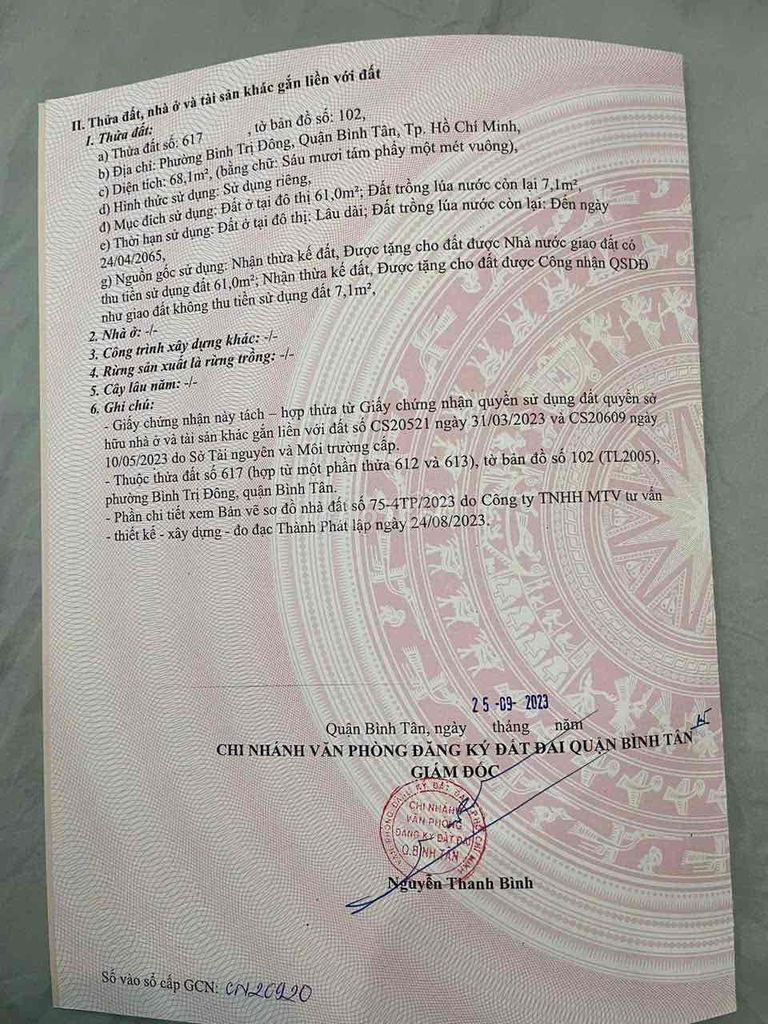 II. Thửa đất, nhà ở và tài sản khác gắn liền với đất
1. Thửa đất:
a) Thửa đất số: 617 , tờ bản đồ số: 102,
b) Địa chỉ: Phường Bình Trị Đông, Quận Bình Tân, Tp. Hồ Chí Minh,
c) Diện tích: 68,1m², (bằng chữ: Sáu mươi tám phẩy một mét vuông),
d) Hình thức sử dụng: Sử dụng riêng,
đ) Mục đích sử dụng: Đất ở tại đô thị 61,0m²; Đất trồng lúa nước còn lại 7,1m²,
e) Thời hạn sử dụng: Đất ở tại đô thị: Lâu dài; Đất trồng lúa nước còn lại: Đến ngày
24/04/2065,
g) Nguồn gốc sử dụng: Nhận thừa kế đất, Được tặng cho đất được Nhà nước giao đất có
thu tiền sử dụng đất 61,0m²; Nhận thừa kế đất, Được tặng cho đất được Công nhận QSDĐ
như giao đất không thu tiền sử dụng đất 7,1m²,
2. Nhà ở: -/-
3. Công trình xây dựng khác: -/-
4. Rừng sản xuất là rừng trồng: -/-
5. Cây lâu năm: -/-
6. Ghi chú:
- Giấy chứng nhận này tách – hợp thửa từ Giấy chứng nhận quyền sử dụng đất quyền sở
hữu nhà ở và tài sản khác gắn liền với đất số CS20521 ngày 31/03/2023 và CS20609 ngày
10/05/2023 do Sở Tài nguyên và Môi trường cấp.
- Thuộc thửa đất số 617 (hợp từ một phần thửa 612 và 613), tờ bản đồ số 102 (TL2005),
phường Bình Trị Đông, quận Bình Tân.
- Phần chi tiết xem Bản vẽ sơ đồ nhà đất số 75-4TP/2023 do Công ty TNHH MTV tư vấn
- thiết kế - xây dựng - đo đạc Thành Phát lập ngày 24/08/2023.
25 -09- 2023
Quận Bình Tân, ngày tháng năm
CHI NHÁNH VĂN PHÒNG ĐĂNG KÝ ĐẤT ĐAI QUẬN BÌNH TÂN
GIÁM ĐỐC
CHI NHÁNH
VĂN PHÒNG
ĐĂNG KÝ ĐẤT ĐAI
Q.BÌNH TÂN
Nguyễn Thanh Bình
Số vào sổ cấp GCN: CN20920